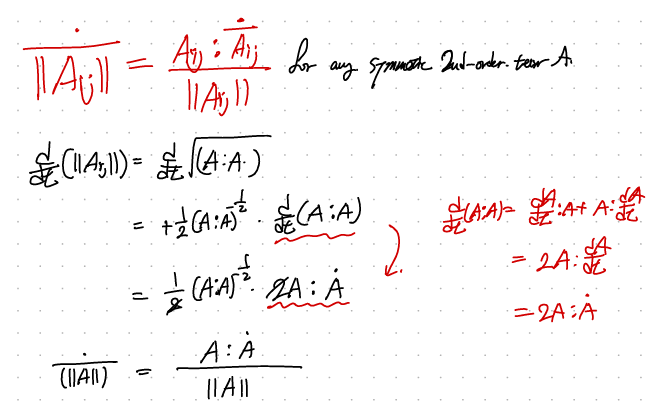 \dot{\overline{||A_{ij}||}} = \frac{A_{ij} : \dot{\overline{A_{ij}}}}{||A_{ij}||} for any symmetric 2nd-order tensor A.
\frac{d}{dt}(||A_{ij}||) = \frac{d}{dt}\sqrt{(A:A)}
= +\frac{1}{2}(A:A)^{-\frac{1}{2}} \cdot \frac{d}{dt}(A:A)
= \frac{1}{2}(A:A)^{-\frac{1}{2}} \cdot 2A:\dot{A}
\dot{\overline{(||A||)}} = \frac{A:\dot{A}}{||A||}
\frac{d}{dt}(A:A) = \frac{dA}{dt}:A + A:\frac{dA}{dt}
= 2A:\frac{dA}{dt}
= 2A:\dot{A}